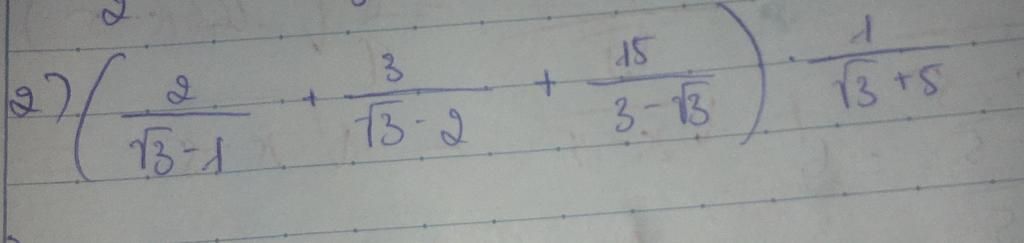 2) ( 2/(√3-1) + 3/(√3-2) + 15/(3-√3) ) . 1/(√3+5)